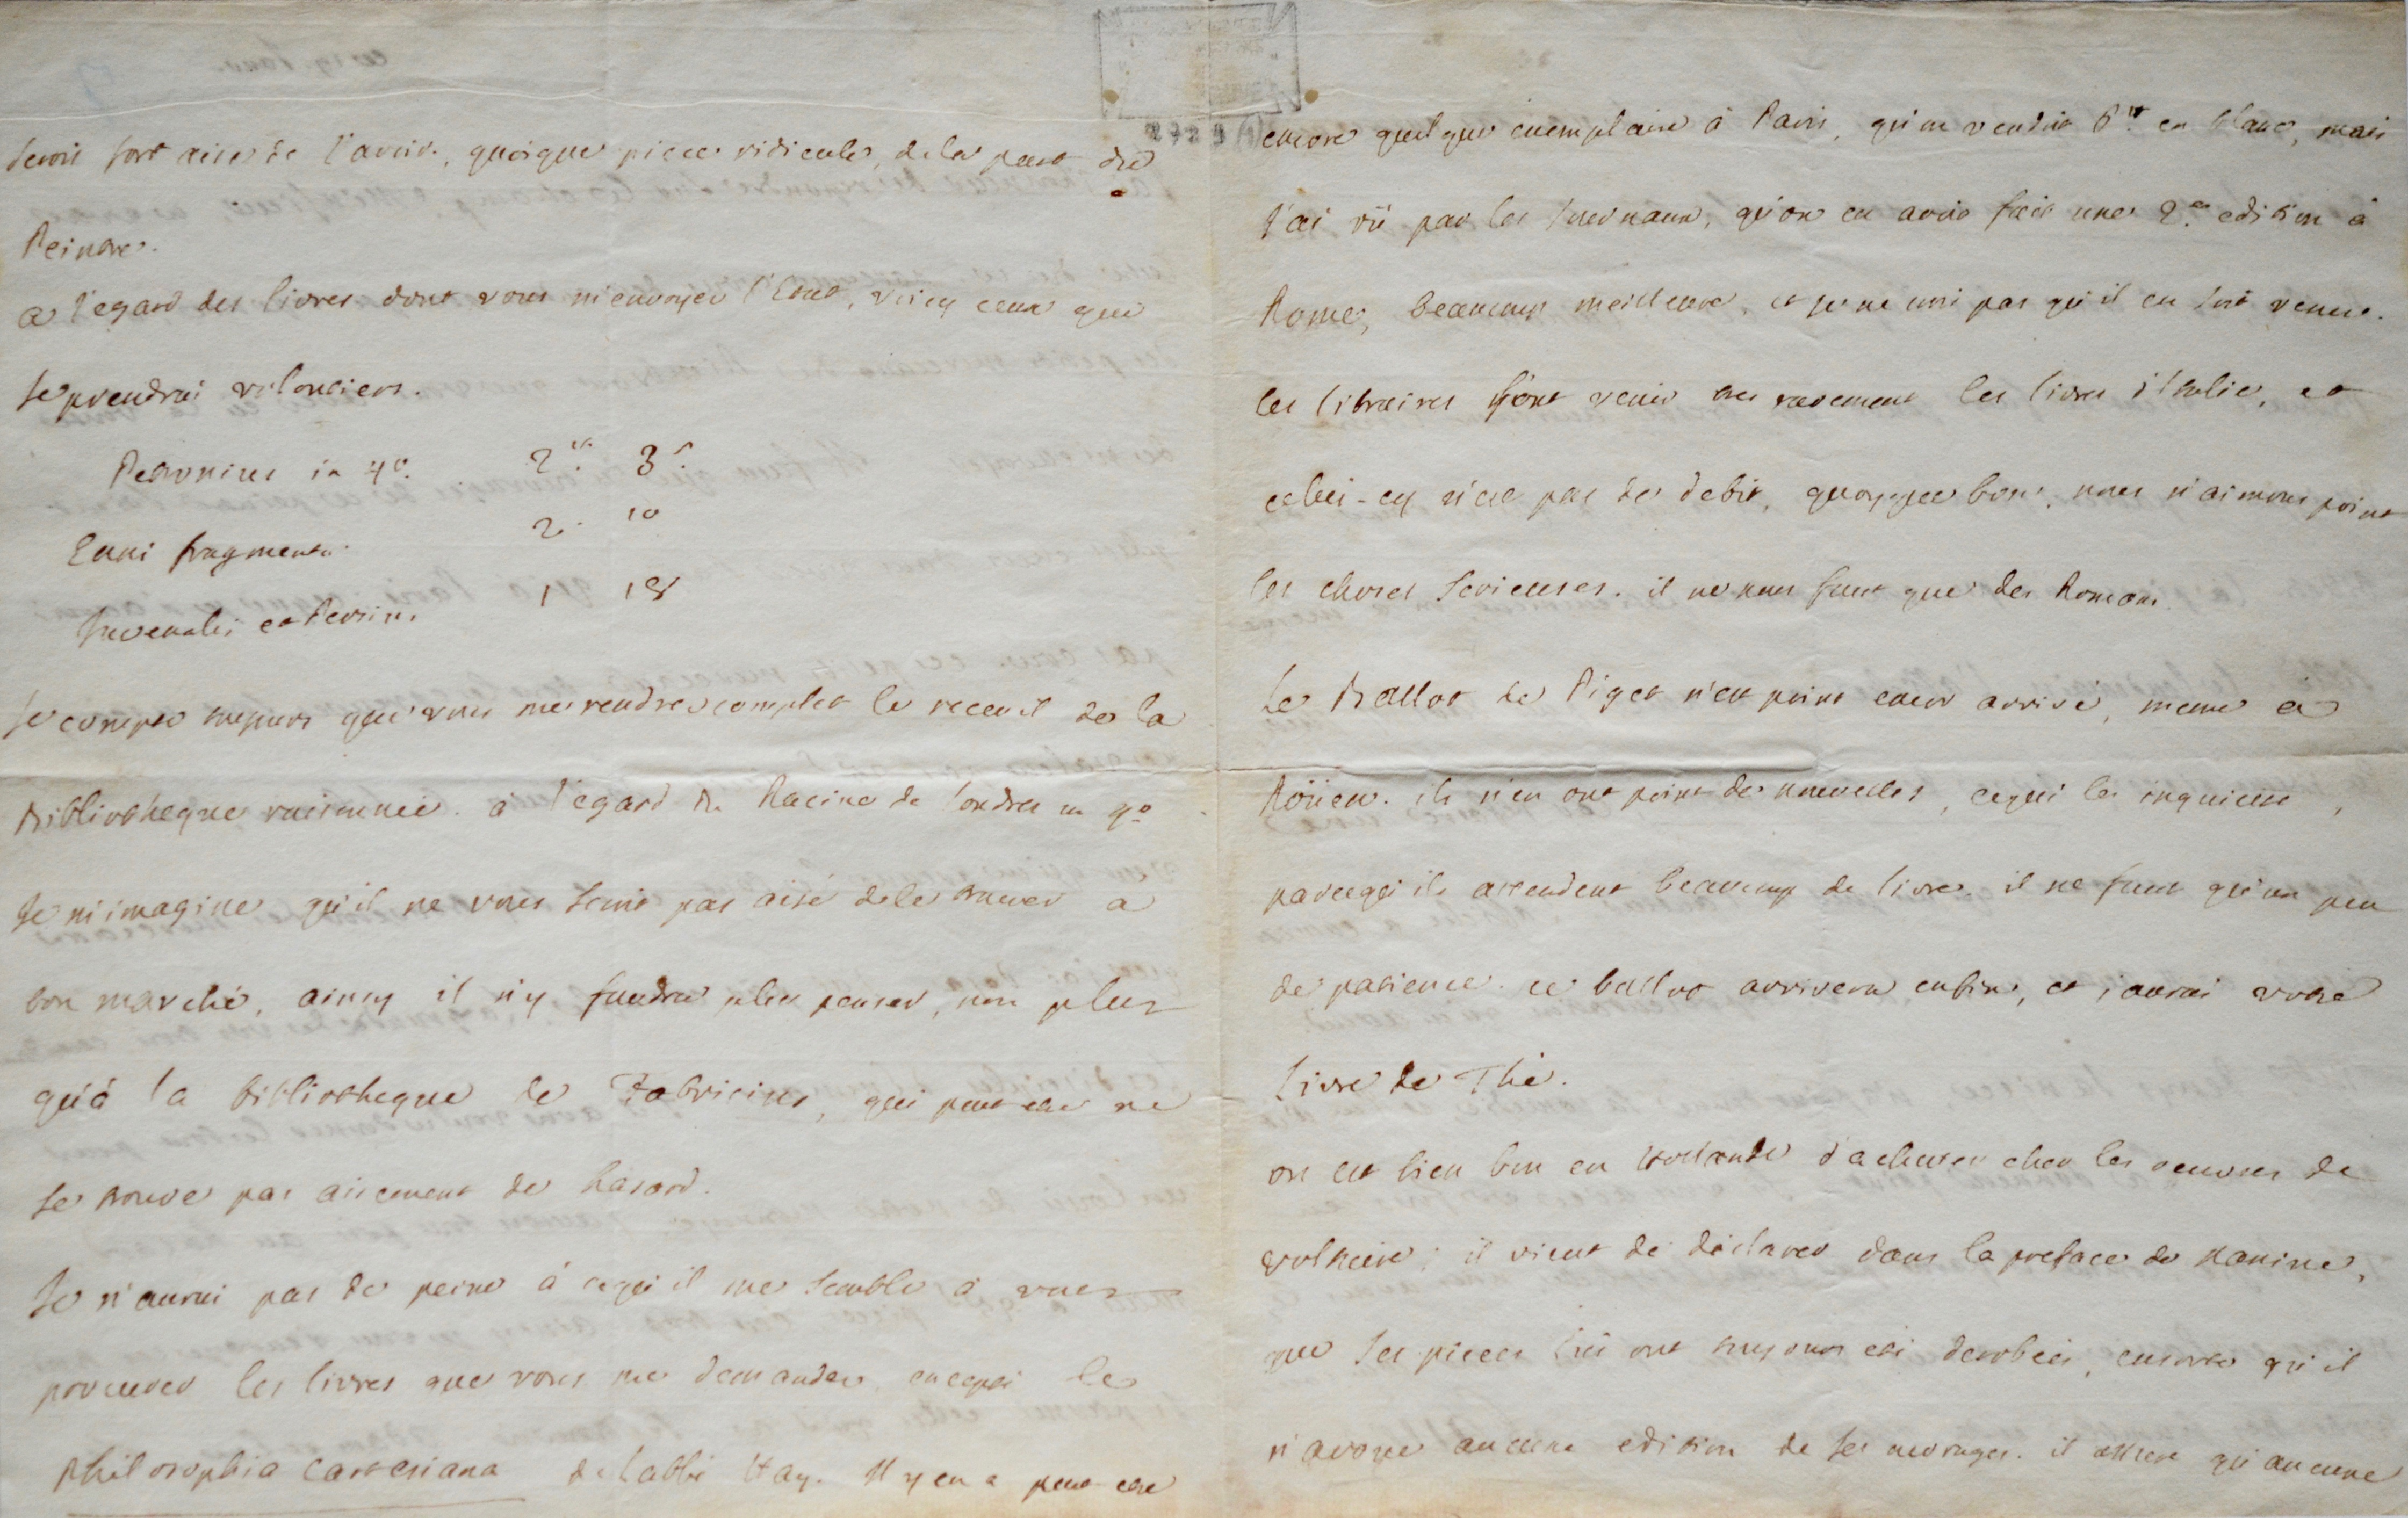 serois fort aise de l'avoir, quoique piece ridicule, de la part du
Peintre.
a l'egard des livres dont vous m'envoyez l'Etat, voicy ceux que
Je prendrai volontiers.
Petronius in 4º. 2.tt 3.s
Enni fragmenta. 2. 10
Juvenalis et Persius 1 18
Je compte toujours que vous me rendrez complet le recueil de la
Bibliotheque raisonnée. à l'egard du Racine de Londres in 4º
Je m'imagine qu'il ne vous seroit pas aisé de le trouver à
bon marché, ainsy il n'y faudra plus penser, non plus
qu'à la bibliotheque de Fabricius, qui peut etre ne
se trouve pas aisement de hasard.
Je n'aurai pas de peine à ce qu'il me semble à vous
procurer les livres que vous me demandez, excepté le
philosophia cartesiana de l'abbé Hay. Il y en a peut etre
encore quelque exemplaire à Paris, qu'on vendoit 6.tt en blanc, mais
J'ai vû par les Journaux, qu'on en avoit fait une 2.e edition à
Rome, beaucoup meilleure, et je ne croi pas qu'il en soit venu.
les libraires font venir tres rarement les livres d'Italie, et
celui-cy n'est pas de debit, quoyque bon, nous n'aimons point
les choses serieuses. il ne nous faut que des Romans.
Le Ballot de Piget n'est point encor arrivé, meme à
Roüen. ils n'en ont point de nouvelles, ce qui les inquiette,
parce qu'ils attendent beaucoup de livres. il ne faut qu'un peu
de patience. ce ballot arrivera enfin, et j'aurai votre
Livre de Thé.
on est bien bon en Hollande d'acheter cher les oeuvres de
voltaire; il vient de déclarer dans la preface de Nanine,
que ses pieces lui ont toujours eté derobées, ensorte qu'il
n'avoue aucune edition de ses ouvrages. il assure qu'aucune